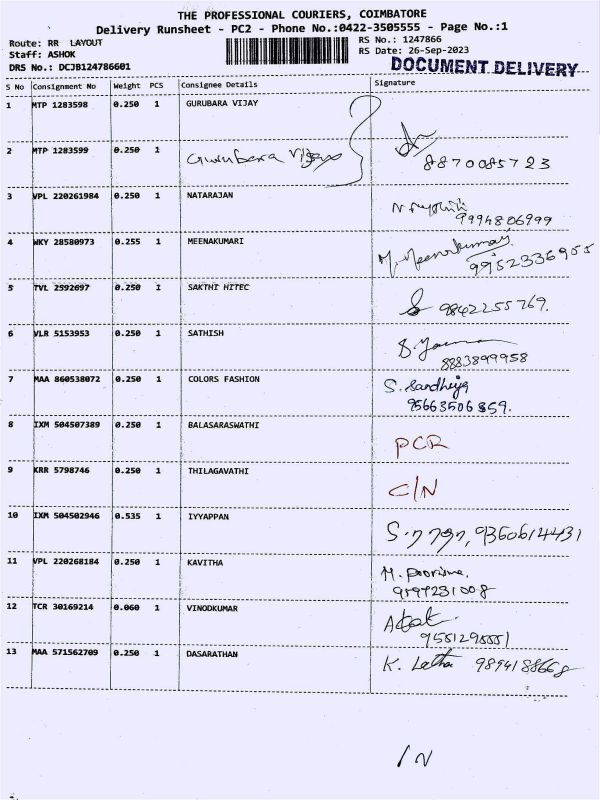 THE PROFESSIONAL COURIERS, COIMBATORE
Delivery Runsheet - PC2 - Phone No.:0422-3505555 - Page No.:1
Route: RR LAYOUT
RS No.: 1247866
Staff: ASHOK
RS Date: 26-Sep-2023
DRS No.: DCJB124786601
DOCUMENT DELIVERY
S No Consignment No Weight PCS Consignee Details Signature
1 MTP 1283598 0.250 1 GURUBARA VIJAY
2 MTP 1283599 0.250 1 Gurubara Vijay
8870085723
3 VPL 220261984 0.250 1 NATARAJAN
9994806999
4 WKY 28580973 0.255 1 MEENAKUMARI M. Meenakumari
9952336955
5 TVL 2592697 0.250 1 SAKTHI HITEC 9842255769.
6 VLR 5153953 0.250 1 SATHISH
8883899958
7 MAA 860538072 0.250 1 COLORS FASHION S. Sandhiya
95663506859.
8 IXM 504507389 0.250 1 BALASARASWATHI PCR
9 KRR 5798746 0.250 1 THILAGAVATHI C/N
10 IXM 504502946 0.535 1 IYYAPPAN 9360614431
11 VPL 220268184 0.250 1 KAVITHA M. Poornima.
12 TCR 30169214 0.060 1 VINODKUMAR
9551295551
13 MAA 571562709 0.250 1 DASARATHAN K. Latha 9894188668